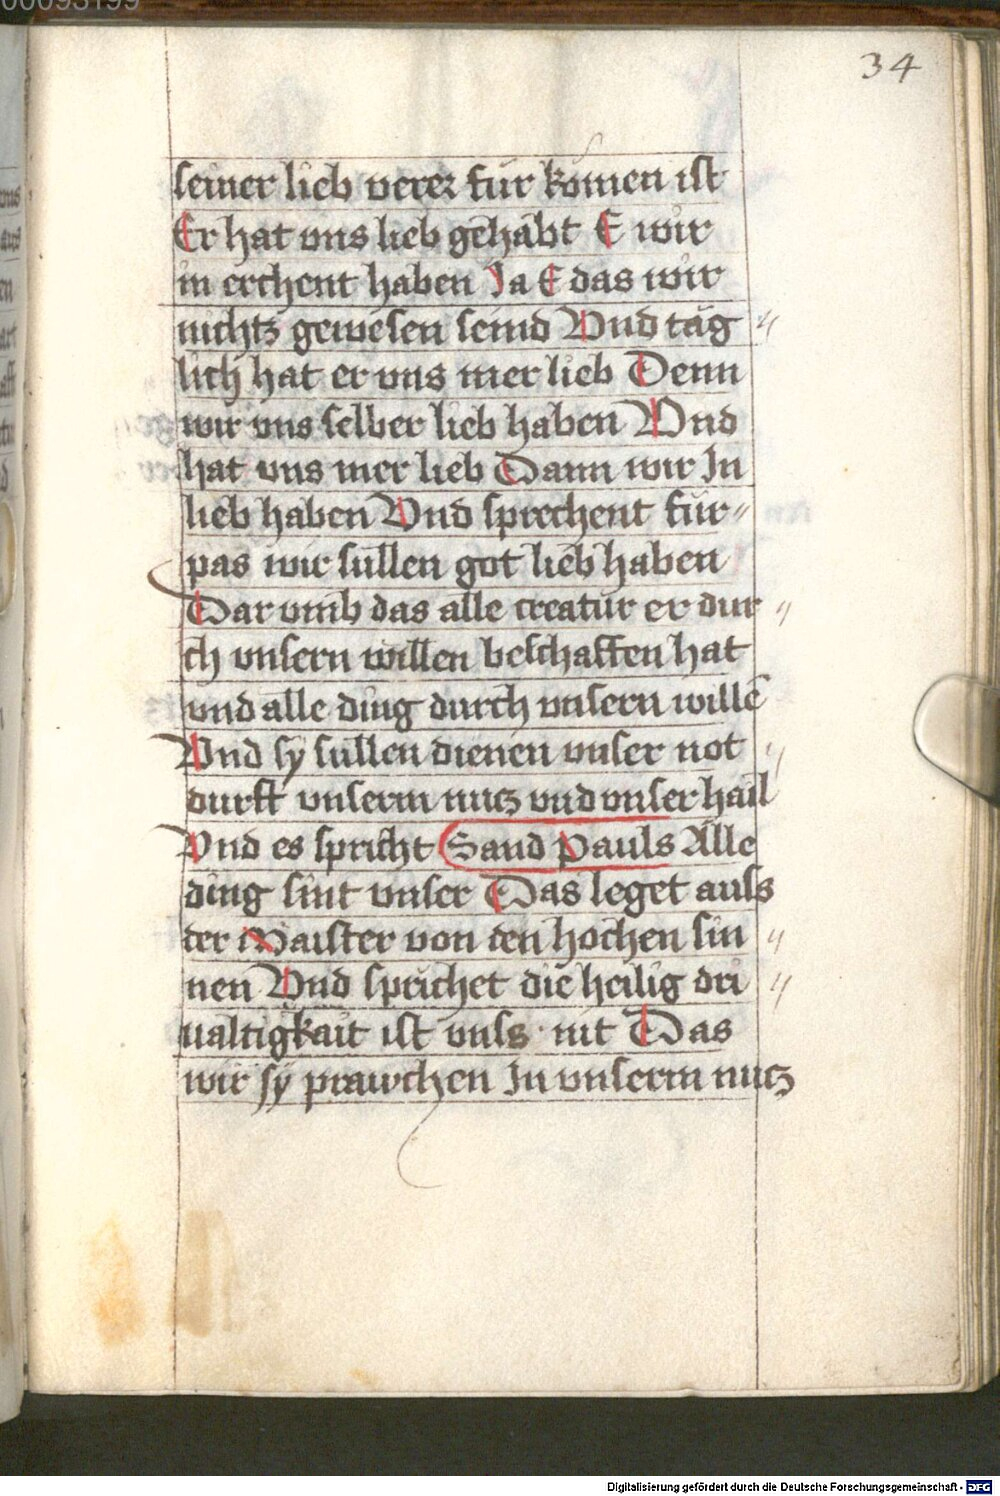 34
seiner lieb verez fur komen ist
Er hat vns lieb gehabt E wir
in erchent haben Ja E das wir
nichtz gewesen seind Vnd täg
lich hat er vns mer lieb Denn
wir vns selber lieb haben Vnd
hat vns mer lieb Dann wir In
lieb haben Vnd sprechent fur
pas wir sullen got lieb haben
Dar vmb das alle creatur er dur
ch vnsern willen beschaffen hat
vnd alle ding durch vnsern willē
Vnd sy sullen dienen vnser not
durft vnserm nucz vnd vnser hail
Vnd es spricht Sand Pauls Alle
ding sint vnser Das leget auss
der Maister von den hochen sin
nen Vnd sprichet die heilig dri
ualtigkait ist vnss nit Das
wir sy prawchen In vnserm nucz
Digitalisierung gefördert durch die Deutsche Forschungsgemeinschaft - DFG